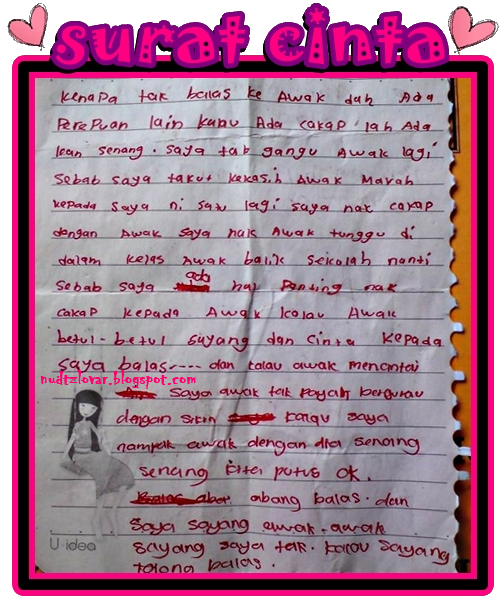 surat cinta
kenapa tak balas ke Awak dah Ada
PerePuan lain kalau Ada cakap lah Ada
kan senang. saya tak gangu Awak lagi
sebab saya takut kekasih Awak Marah
kepada saya ni satu lagi saya nak cakap
dengan Awak saya nak Awak tunggu di
dalam kelas Awak balik sekolah nanti
sebab saya ada hal Penting nak
cakap kepada Awak kalau Awak
betul-betul sayang dan cinta kepada
saya balas---- dan kalau awak mencintai
nudtzlovar.blogspot.com
saya awak tak payah bergurau
dengan kalau saya
nampak awak dengan dia senang
senang kita putus ok.
abang balas. dan
saya sayang awak. awak
U-idea
sayang saya tak. kalau sayang
tolong balas.